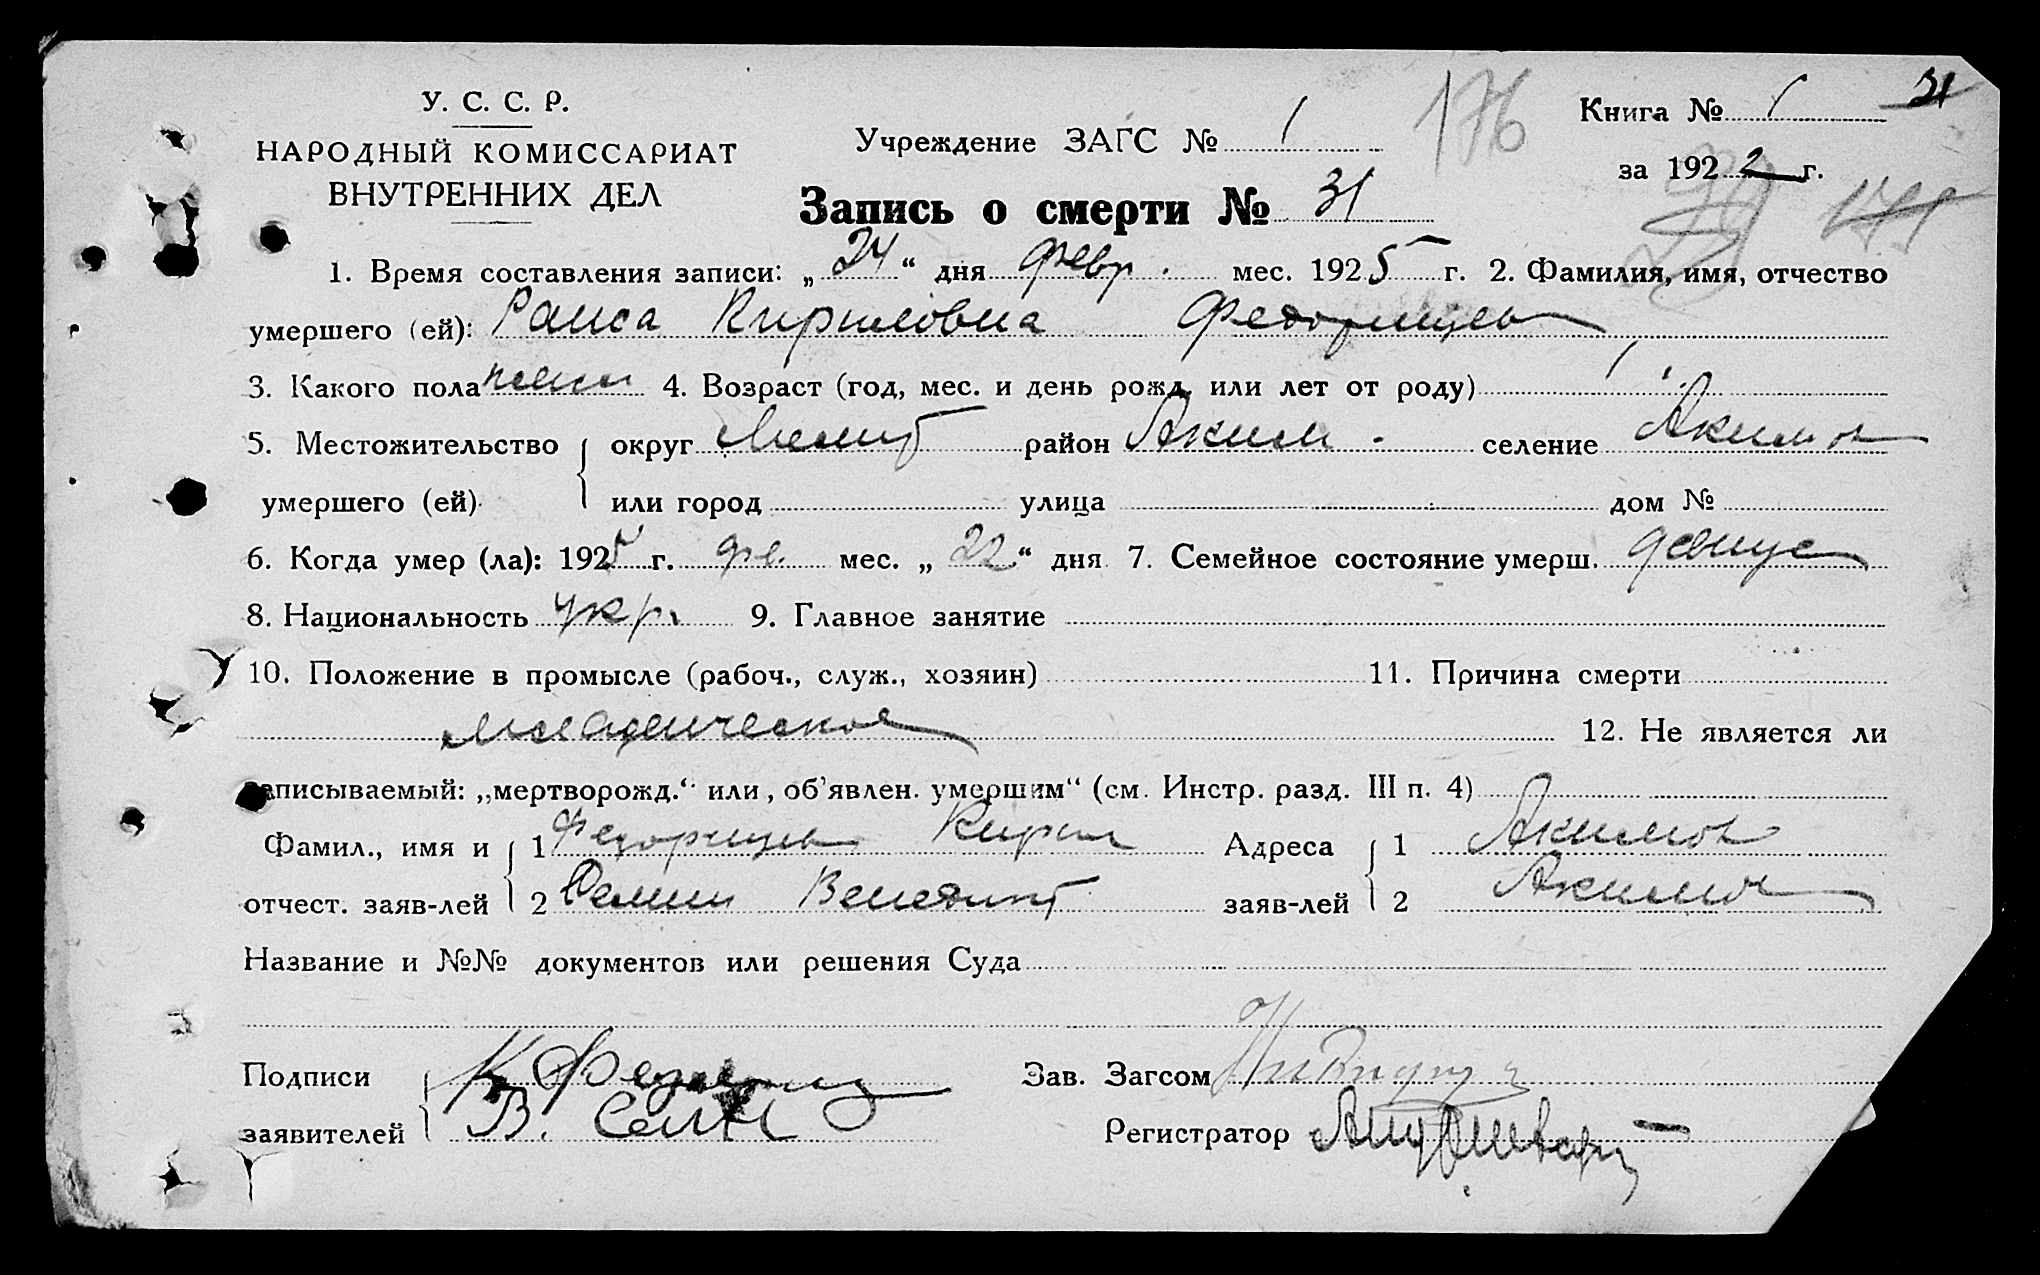 У. С. С. Р.
НАРОДНЫЙ КОМИССАРИАТ
ВНУТРЕННИХ ДЕЛ
Учреждение ЗАГС № 1
176
Книга № 1
31
за 1922 г.
Запись о смерти № 31
1. Время составления записи: „24“ дня февр. мес. 1925 г. 2. Фамилия, имя, отчество
умершего (ей): Раиса Кириловна
3. Какого пола 4. Возраст (год, мес. и день рожд. или лет от роду) 1
5. Местожительство округ Мелит район Аким. селение Акимов
умершего (ей) или город улица дом №
6. Когда умер (ла): 1925 г. фев. мес. „22“ дня 7. Семейное состояние умерш. девица
8. Национальность укр. 9. Главное занятие
10. Положение в промысле (рабоч., служ., хозяин) 11. Причина смерти
младенческое 12. Не является ли
записываемый: „мертворожд.“ или „об'явлен. умершим“ (см. Инстр. разд. III п. 4)
Фамил., имя и 1 Кирил Адреса 1 Акимов
отчест. заяв-лей 2 Венедикт заяв-лей 2 Акимов
Название и №№ документов или решения Суда
Подписи К Зав. Загсом
заявителей В. Регистратор